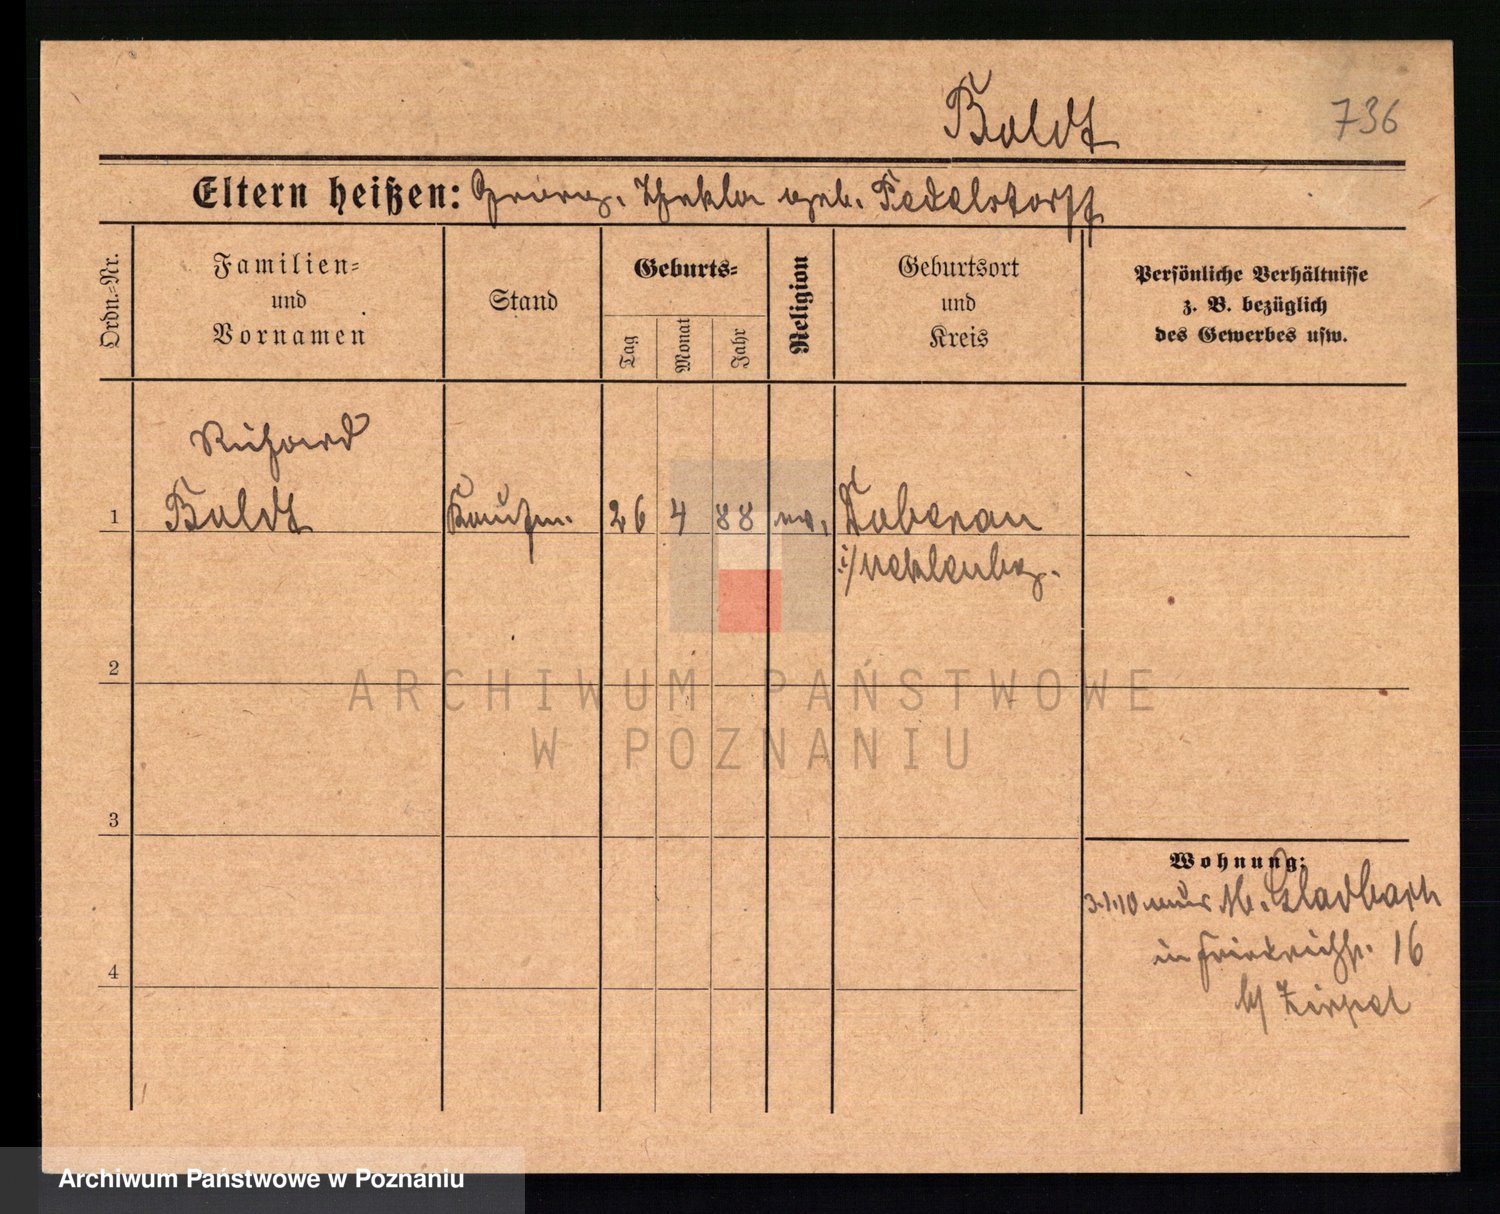 Boldt
736
Eltern heißen: Georg, Thekla geb. Pedelstorff
Ordn.-Nr.
Familien-
und
Vornamen
Stand
Geburts-
Tag
Monat
Jahr
Religion
Geburtsort
und
Kreis
Persönliche Verhältnisse
z. B. bezüglich
des Gewerbes usw.
Richard
1 Boldt Kaufm. 26 4 88 ev. Doberan
i/Meklenbg.
2
ARCHIWUM PAŃSTWOWE
W POZNANIU
3
Wohnung:
3.1.10 aus M. Gladbach
in Friedrichstr. 16
4
b/
Archiwum Państwowe w Poznaniu